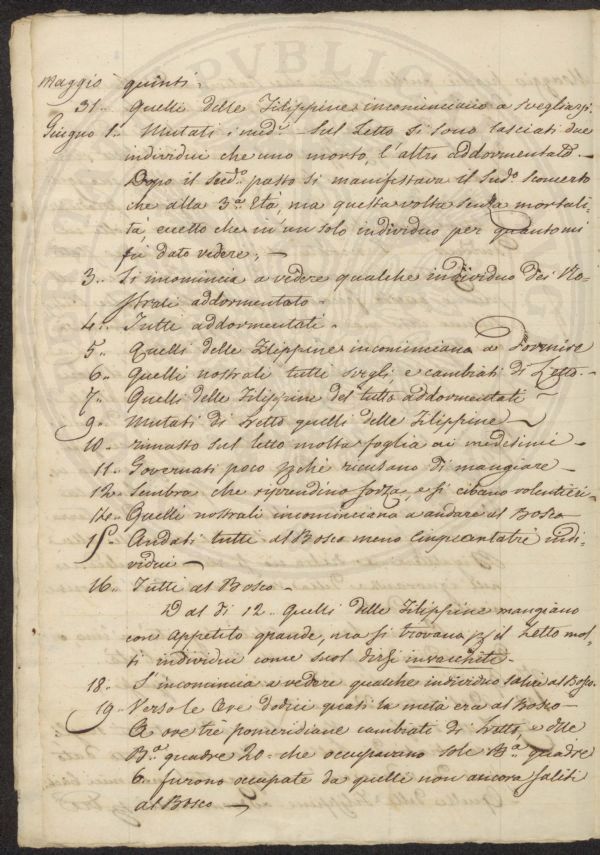 Maggio quinti;
31.. Quelli delle Filippine incominciano a svegliarsi.
Giugno 1.. Mutati i med.i — Sul Letto si sono lasciati due
individui che uno morto, l'altro addormentato. —
Dopo il Sud.o pasto si manifestava il Sud.o Sconcerto
che alla 3.a Età, ma questa volta senza mortali-
tà, eccetto che in un solo individuo per quanto mi
fù dato vedere; —
3.. Si incomincia a vedere qualche individuo dei No-
strali addormentato —
4.. Tutti addormentati —
5.. Quelli delle Filippine incominciano a Dormire
6.. Quelli nostrali tutti svegli e cambiati di Letto. —
7.. Quelli delle Filippine del tutto addormentati —
9.. Mutati di Letto quelli delle Filippine —
10.. rimasto sul letto molta foglia ai medesimi —
11.. Governati poco pchè ricusano di mangiare —
12.. Sembra che riprendino forza, e si cibano volentieri —
14.. Quelli nostrali incominciano a andare al Bosco —
15.. Andati tutti al Bosco meno Cinquantatrè indi-
vidui —
16.. Tutti al Bosco —
Dal dì 12.. Quelli delle Filippine mangiano
con appetito grande, ma si trovano p il Letto mol-
ti individui come suol dirsi invacchiti —
18.. S'incomincia a vedere qualche individuo salire al Bosco.
19.. Verso le Ore dodici quasi la metà era al Bosco —
A ore tre pomeridiane cambiati di Letto, e dalle
B.a quadre 20.. che occupavano sole B.a quadre
6.. furono occupate da quelli non ancora saliti
al Bosco —